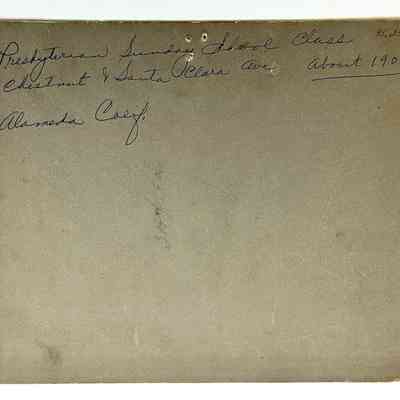 Presbyterian Sunday School Class
Chestnut & Santa Clara Ave. About 190
Alameda Calif.